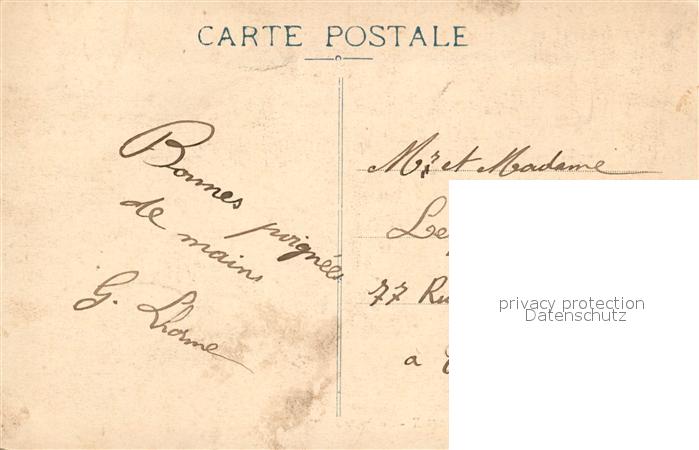 CARTE POSTALE
Bonnes poignées
de mains
G. Lhorme
Mr et Madame
77
a
privacy protection
Datenschutz